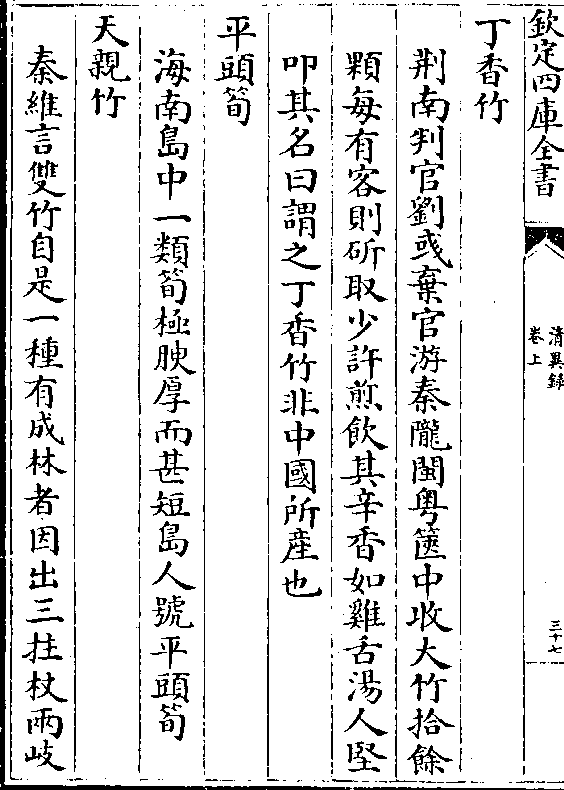 欽定四庫全書
清異錄
卷上
三十七
丁香竹
荆南判官劉彧棄官游秦隴閩粤篋中收大竹拾餘
顆每有客則斫取少許煎飲其辛香如雞舌湯人堅
叩其名曰謂之丁香竹非中國所産也
平頭筍
海南島中一類筍極腴厚而甚短島人號平頭筍
天親竹
秦維言雙竹自是一種有成林者因出三拄杖兩岐